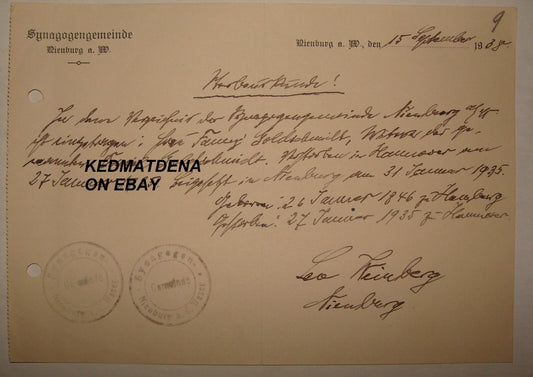 9
Synagogengemeinde
Nienburg a. W.
Nienburg a. W., den 15 September 1938.
Sterbeurkunde!
In dem Verzeichnis der Synagogengemeinde Nienburg a/W
ist eingetragen: Frau Fanny Goldschmidt, Witwe der
Goldschmidt. Gestorben in Hannover am
27 Januar beigesetzt in Nienburg am 31 Januar 1935.
Geboren: 26 Januar 1846 zu Hamburg
Gestorben: 27 Januar 1935 zu Hannover
KEDMATDENA
ON EBAY
Synagogen-
Gemeinde
Nienburg a. d. Weser
Synagogen-
Gemeinde
Nienburg a. d. Weser
Leo Weinberg
Nienburg.